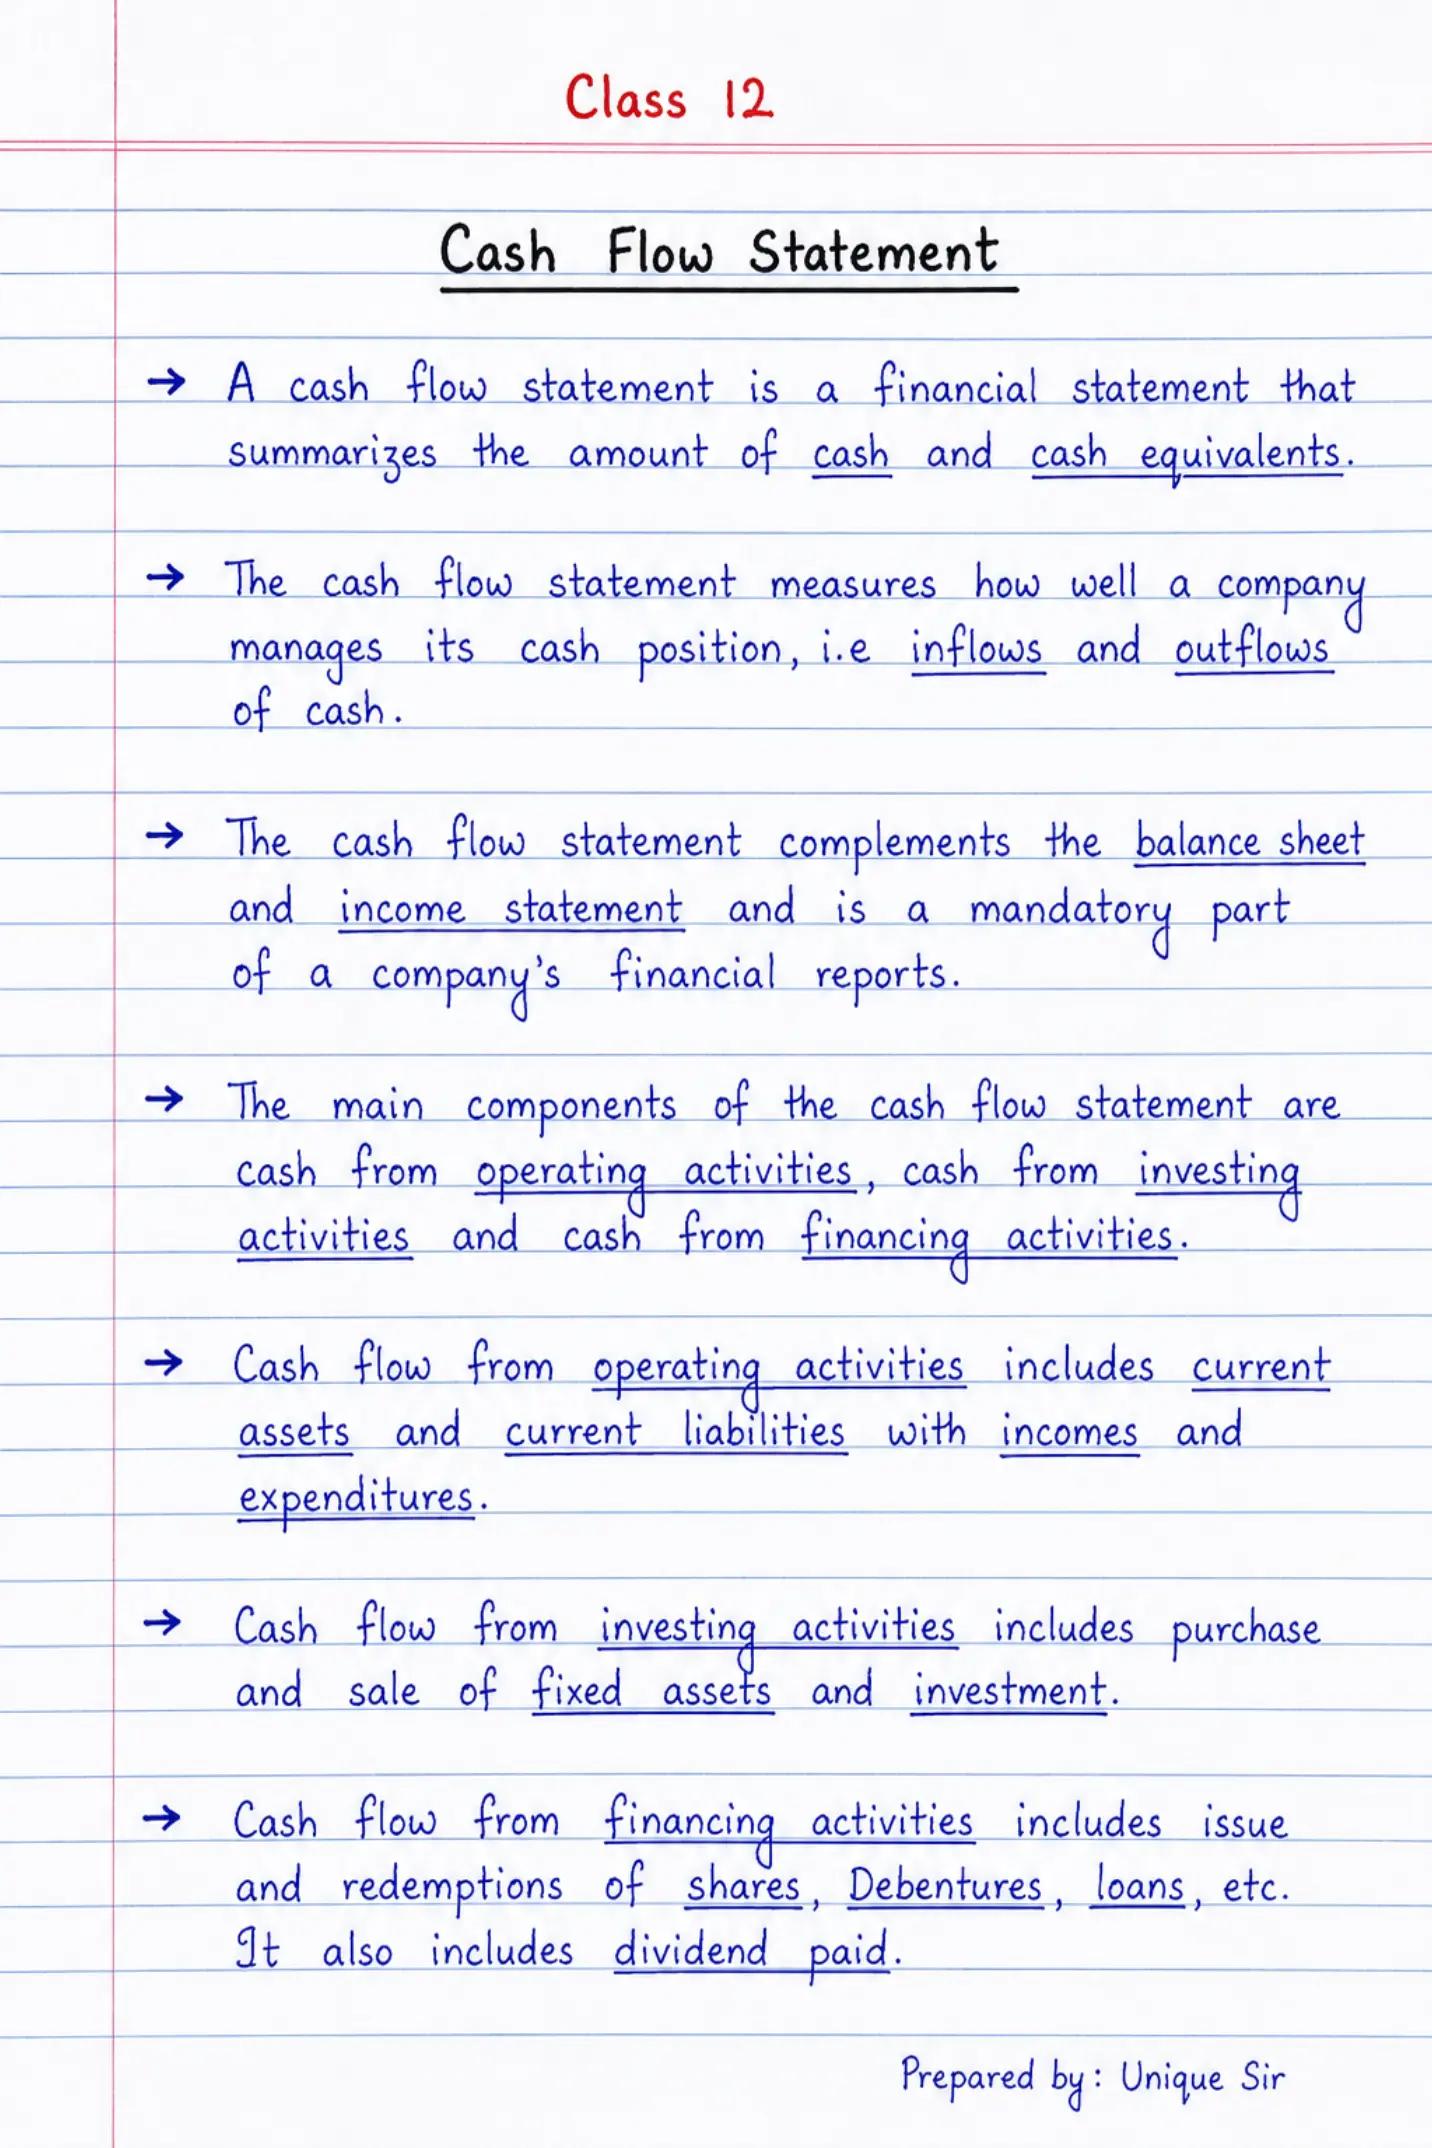 Class 12
Cash Flow Statement
→ A cash flow statement is a financial statement that
summarizes the amount of cash and cash equivalents.
→ The cash flow statement measures how well a company
manages its cash position, i.e inflows and outflows
of cash.
→ The cash flow statement complements the balance sheet
and income statement and is a mandatory part
of a company's financial reports.
→ The main components of the cash flow statement are
cash from operating activities, cash from investing
activities and cash from financing activities.
→ Cash flow from operating activities includes current
assets and current liabilities with incomes and
expenditures.
→ Cash flow from investing activities includes purchase
and sale of fixed assets and investment.
→ Cash flow from financing activities includes issue
and redemptions of shares, Debentures, loans, etc.
It also includes dividend paid.
Prepared by: Unique Sir